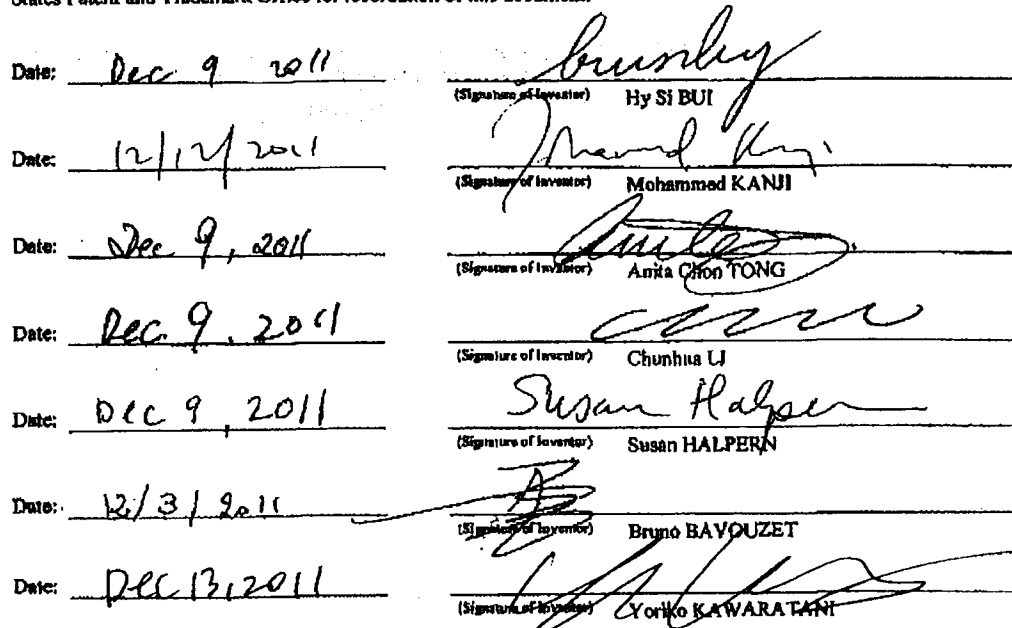 States Patent and Trademark Office for recordation of this document.
Date: Dec 9 2011
(Signature of Inventor) Hy Si BUI
Date: 12/12/2011
(Signature of Inventor) Mohammed KANJI
Date: Dec 9, 2011
(Signature of Inventor) Anita Chon TONG
Date: Dec 9, 2011
(Signature of Inventor) Chunhua LI
Date: Dec 9, 2011 Susan Halpern
(Signature of Inventor) Susan HALPERN
Date: 12/3/2011
(Signature of Inventor) Bruno BAVOUZET
Date: Dec 13, 2011
(Signature of Inventor) Yoriko KAWARATANI